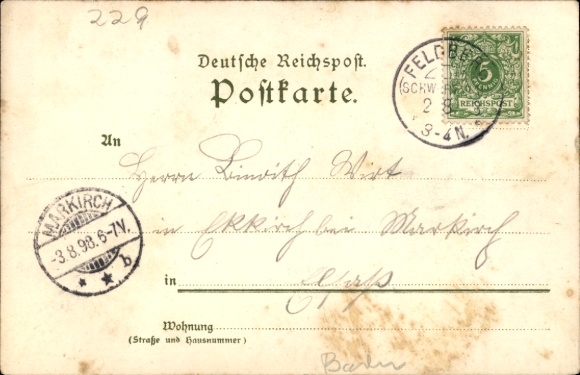 229
Deutsche Reichspost.
Postkarte.
FELDBE
SCHW
2 8
3-4N.
5
REICHSPOST
An
Herrn Wirt
in Eckkirch bei Markirch
in Elsaß
MARKIRCH
-3.8.98.6-7V.
b
Wohnung
(Straße und Hausnummer)
Baden